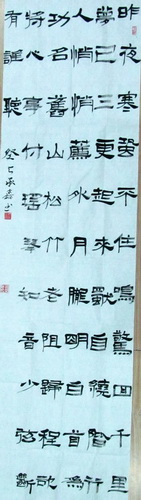 昨夜寒蛩不住鳴驚回千里
夢已三更起來獨自繞階行
人悄悄簾外月朧明白首為
功名舊山松竹老阻歸程欲
將心事付瑤琴知音少弦斷
有誰聽
癸巳